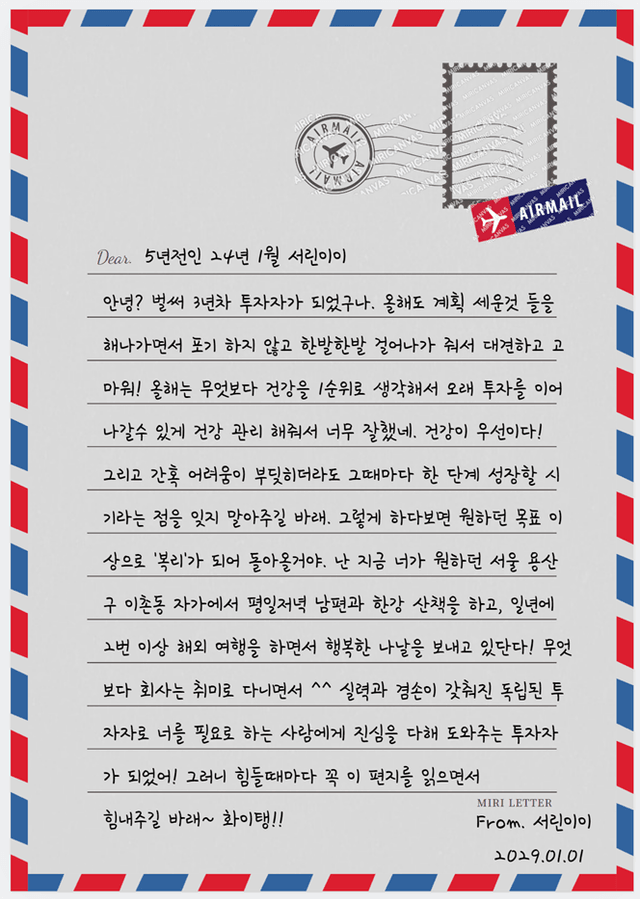 AIRMAIL
AIRMAIL
AIRMAIL
Dear. 5년전인 24년 1월 서린이이
안녕? 벌써 3년차 투자자가 되었구나. 올해도 계획 세운것 들을
해나가면서 포기 하지 않고 한발한발 걸어나가 줘서 대견하고 고
마워! 올해는 무엇보다 건강을 1순위로 생각해서 오래 투자를 이어
나갈수 있게 건강 관리 해줘서 너무 잘했네. 건강이 우선이다!
그리고 간혹 어려움이 부딪히더라도 그때마다 한 단계 성장할 시
기라는 점을 잊지 말아주길 바래. 그렇게 하다보면 원하던 목표 이
상으로 '복리'가 되어 돌아올거야. 난 지금 너가 원하던 서울 용산
구 이촌동 자가에서 평일저녁 남편과 한강 산책을 하고, 일년에
2번 이상 해외 여행을 하면서 행복한 나날을 보내고 있단다! 무엇
보다 회사는 취미로 다니면서 ^^ 실력과 겸손이 갖춰진 독립된 투
자자로 너를 필요로 하는 사람에게 진심을 다해 도와주는 투자자
가 되었어! 그러니 힘들때마다 꼭 이 편지를 읽으면서
힘내주길 바래~ 화이탱!!
MIRI LETTER
From. 서린이이
2029.01.01